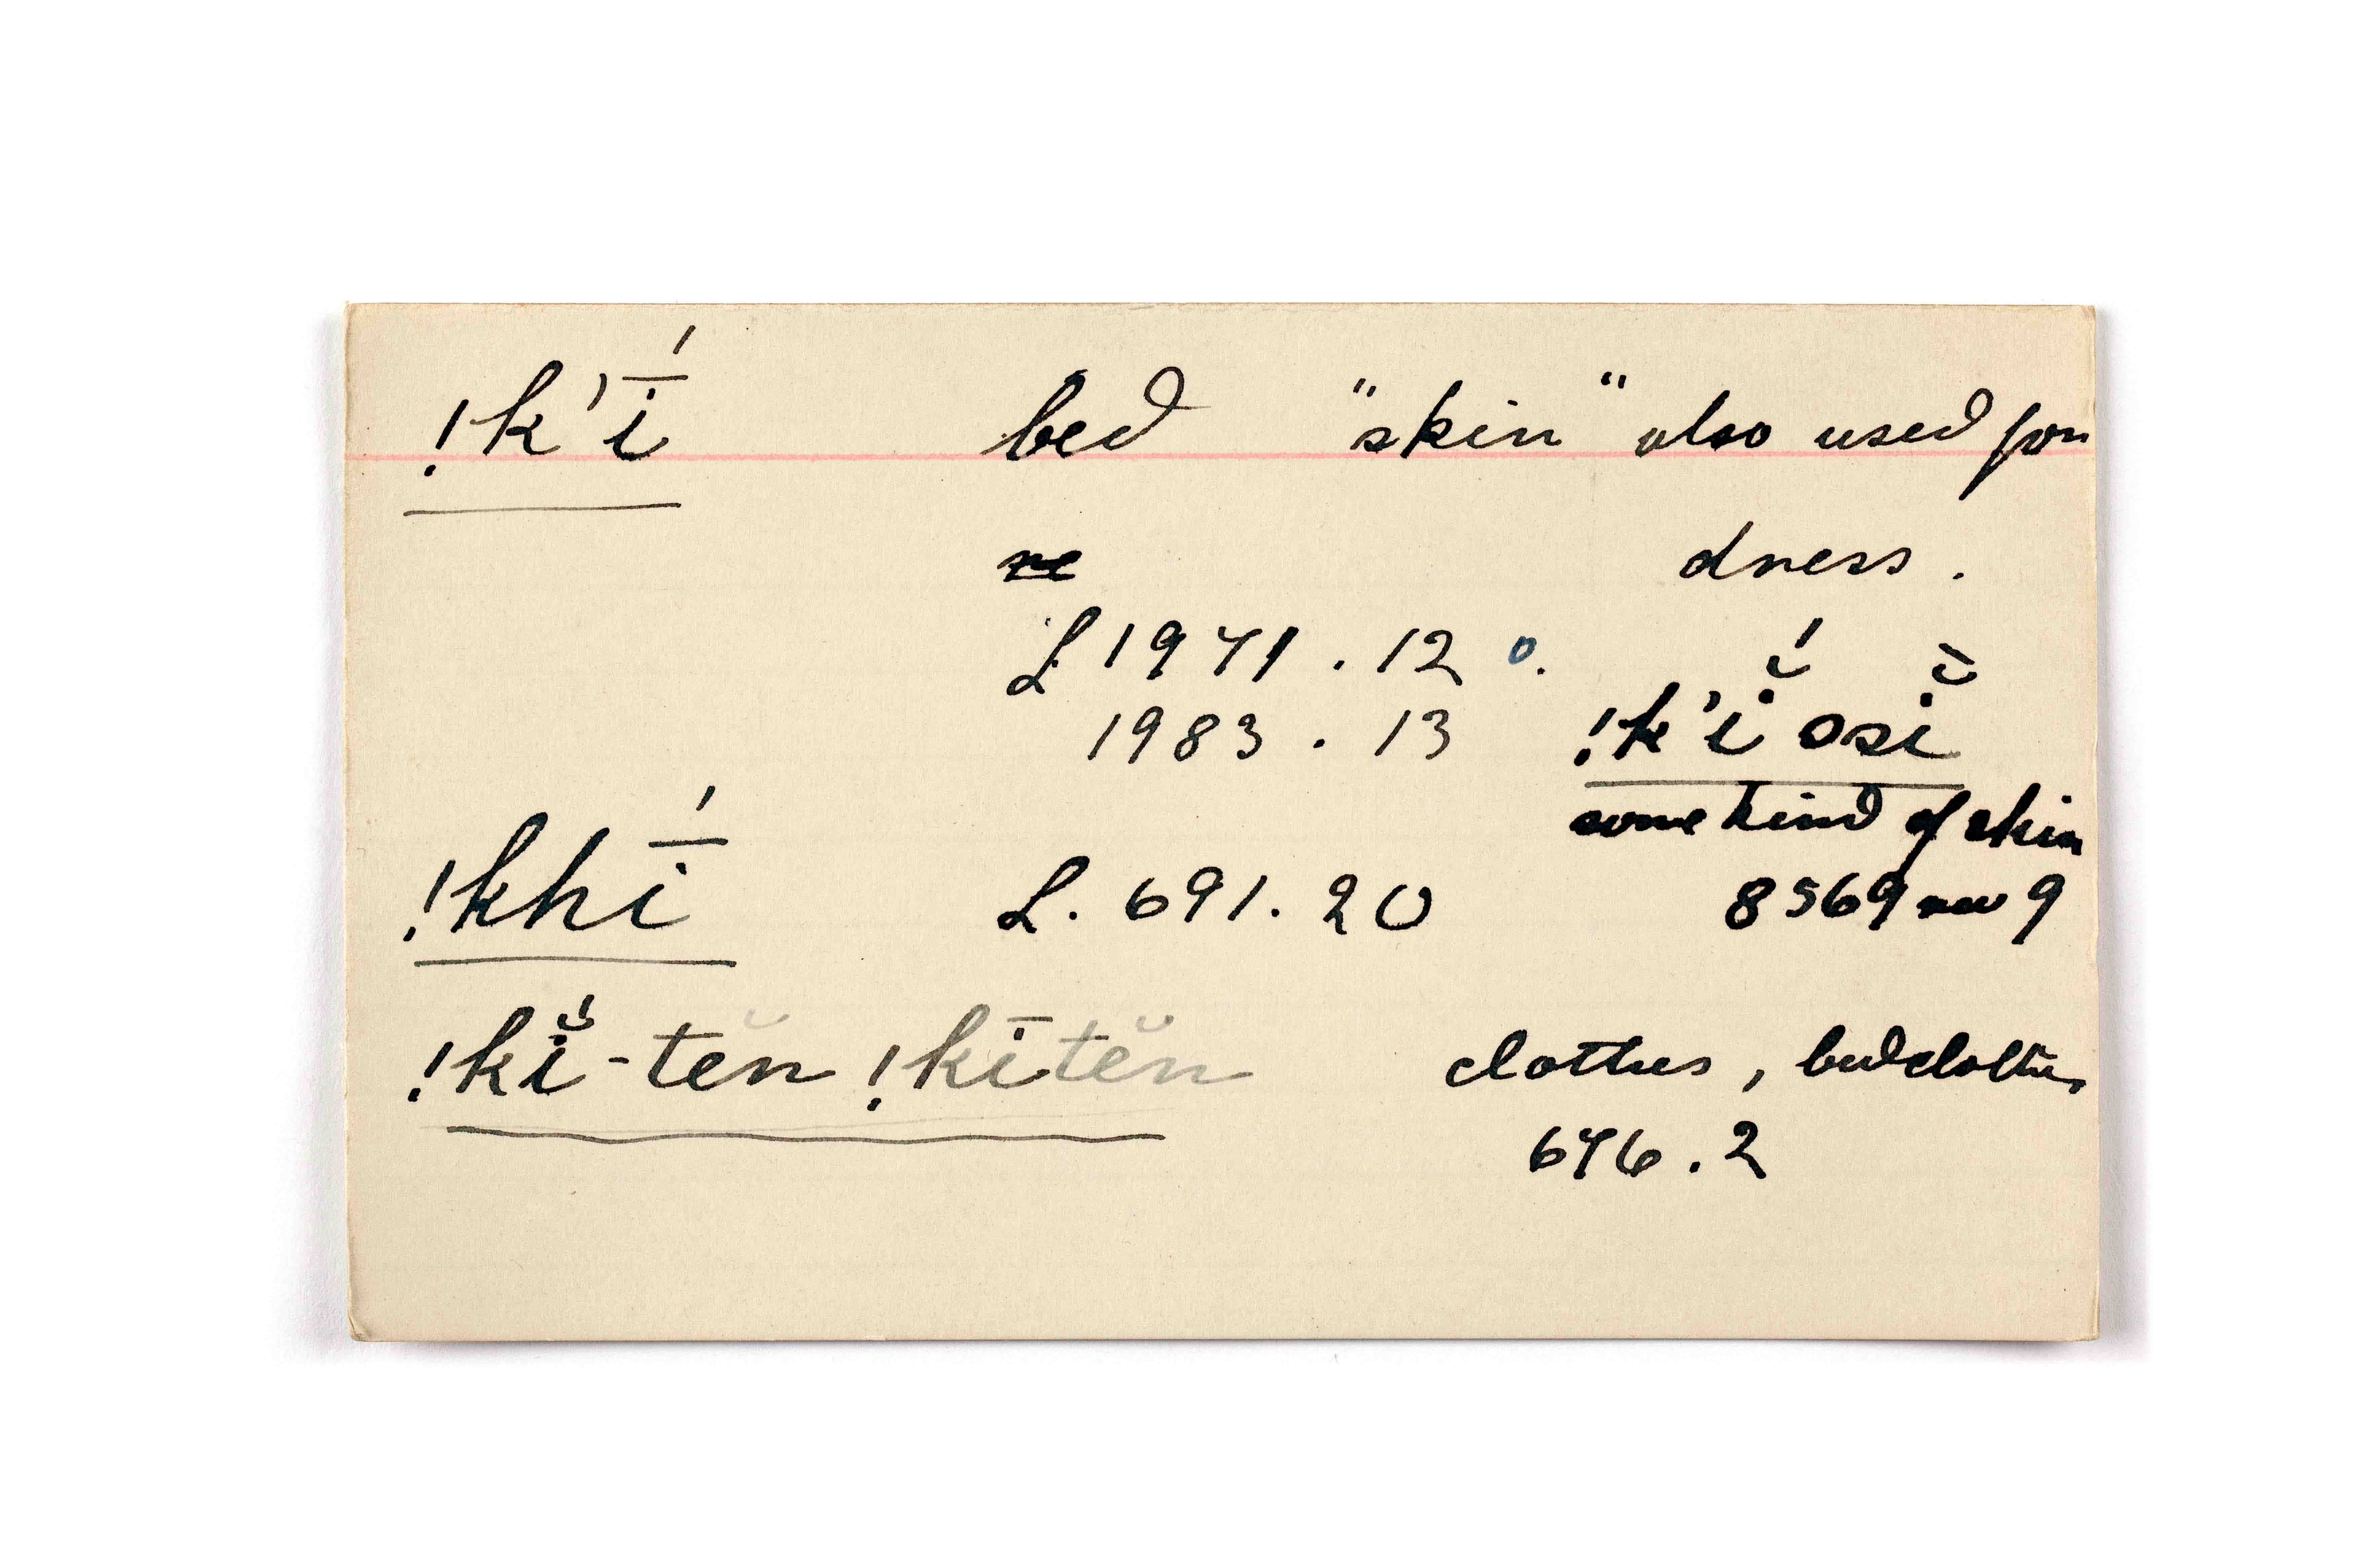 !k'ī́ bed "skin" also used for
dress.
L 1941 . 12 o.
1983 . 13 !k'ĭ́ osī̆
some kind of skin
!khī́ L. 691. 20 8569 rev 9
!kĭ́-ten !kītĕn clothes, bedclothes
646 . 2